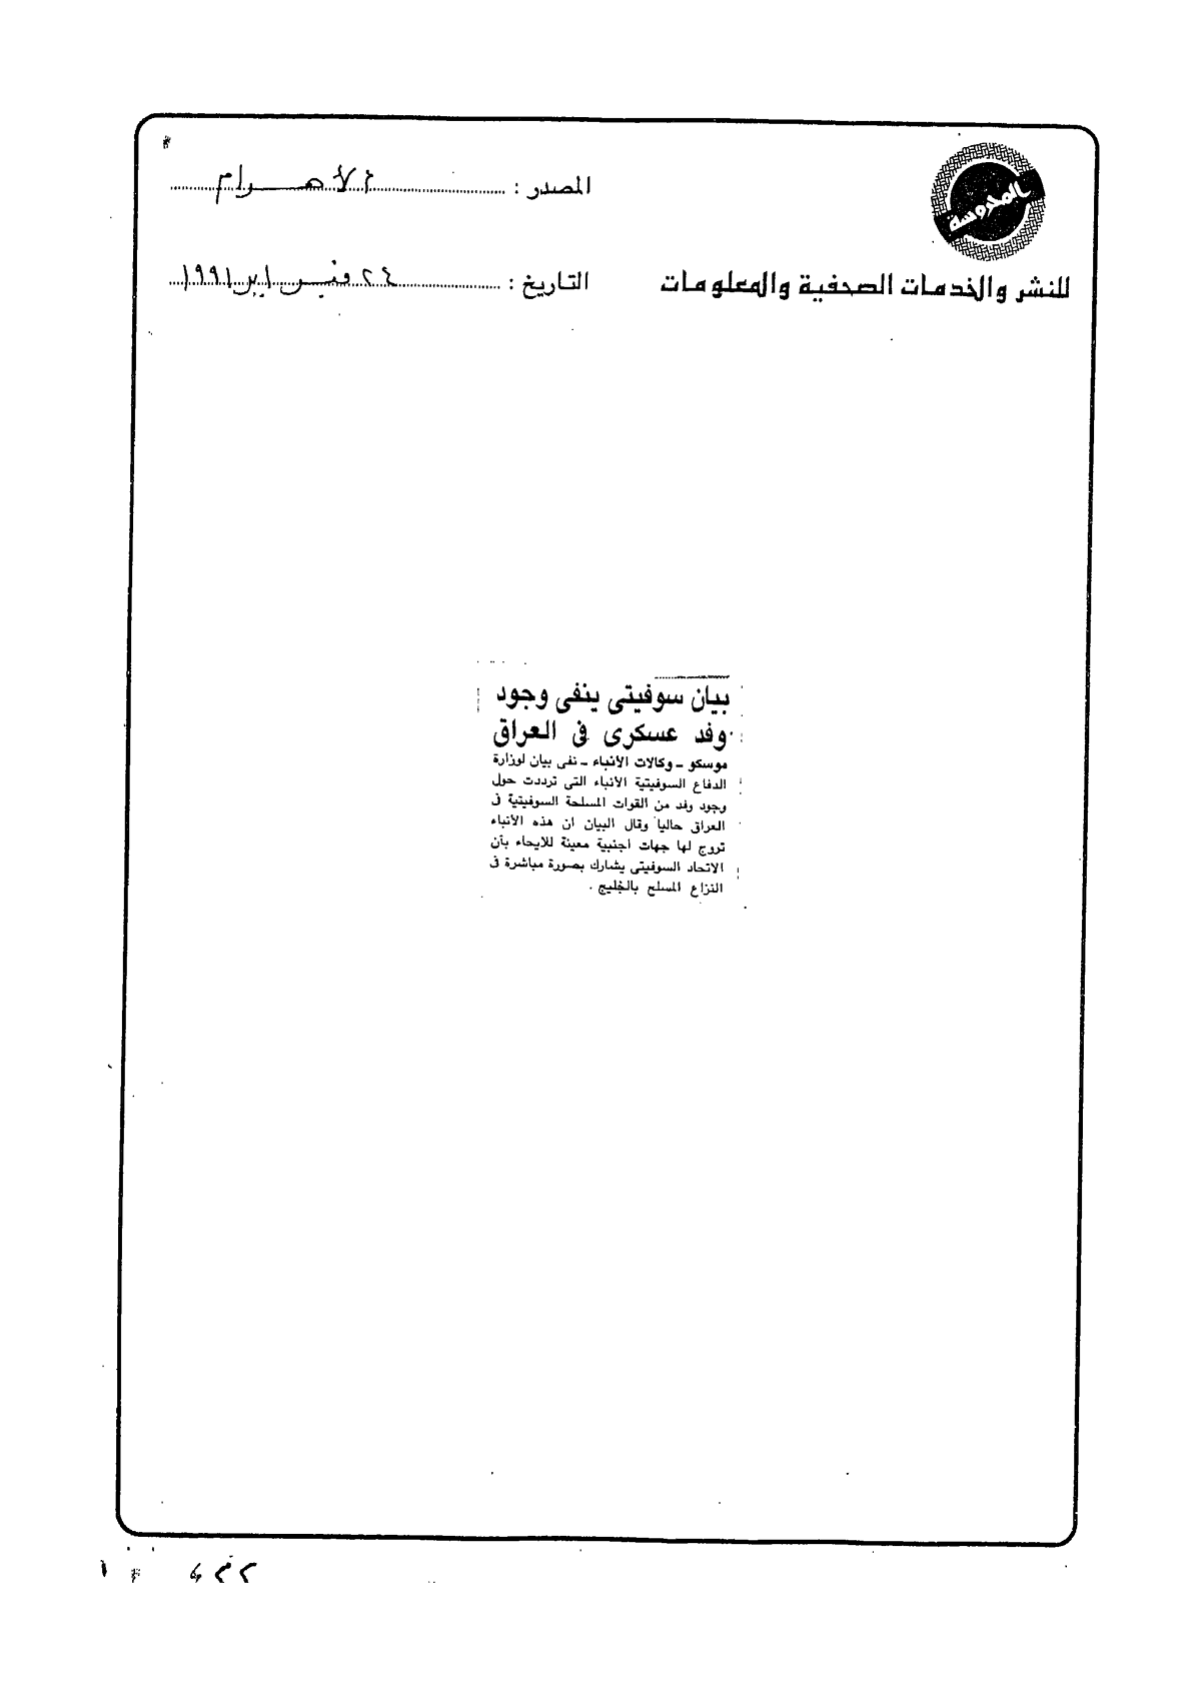 المحروسة
للنشر والخدمات الصحفية والمعلومات
المصدر : الأهـرام
التاريخ : ٢٤ فبراير ١٩٩١
بيان سوفيتى ينفى وجود
وفد عسكرى فى العراق
موسكو ـ وكالات الأنباء ـ نفى بيان لوزارة
الدفاع السوفيتية الأنباء التى ترددت حول
وجود وفد من القوات المسلحة السوفيتية فى
العراق حاليا وقال البيان ان هذه الأنباء
تروج لها جهات اجنبية معينة للايحاء بأن
الاتحاد السوفيتى يشارك بصورة مباشرة فى
النزاع المسلح بالخليج .